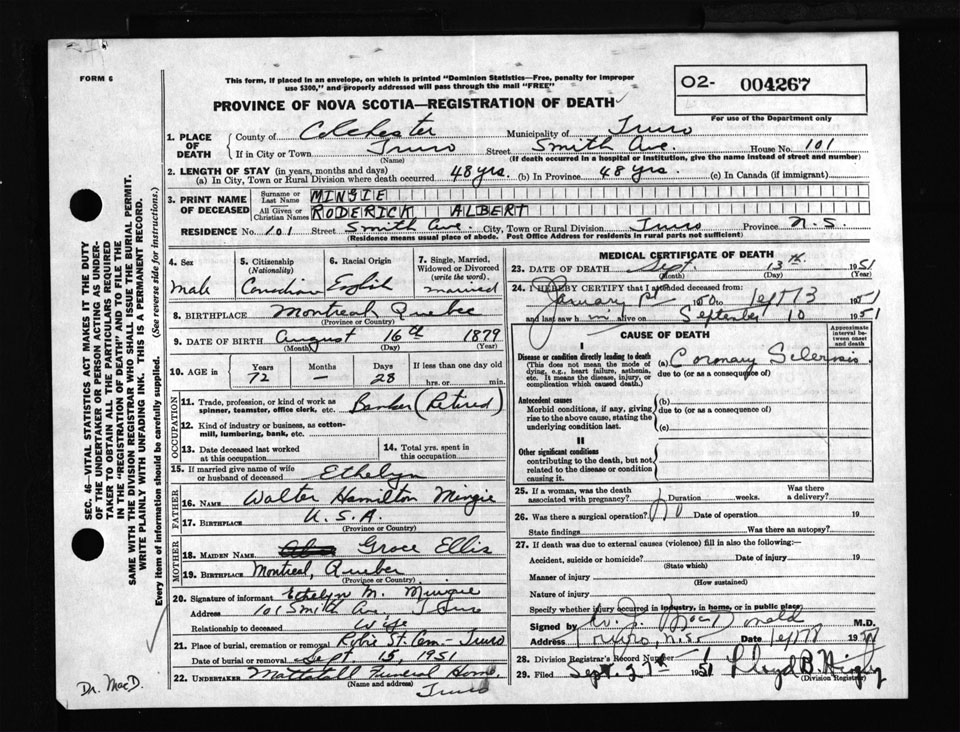 FORM 6
This form, if placed in an envelope, on which is printed "Dominion Statistics—Free, penalty for improper
use $300," and properly addressed will pass through the mail "FREE"
PROVINCE OF NOVA SCOTIA—REGISTRATION OF DEATH
O2- 004267
For use of the Department only
SEC. 46—VITAL STATISTICS ACT MAKES IT THE DUTY
OF THE UNDERTAKER OR PERSON ACTING AS UNDER-
TAKER TO OBTAIN ALL THE PARTICULARS REQUIRED
IN THE "REGISTRATION OF DEATH" AND TO FILE THE
SAME WITH THE DIVISION REGISTRAR WHO SHALL ISSUE THE BURIAL PERMIT.
WRITE PLAINLY WITH UNFADING INK. THIS IS A PERMANENT RECORD.
Every item of information should be carefully supplied. (See reverse side for instructions.)
1. PLACE OF DEATH
County of Colchester Municipality of Truro
If in City or Town Truro Street Smith Ave. House No. 101
(Name) (If death occurred in a hospital or institution, give the name instead of street and number)
2. LENGTH OF STAY (in years, months and days)
(a) In City, Town or Rural Division where death occurred 48 yrs. (b) In Province 48 yrs. (c) In Canada (if immigrant)
3. PRINT NAME OF DECEASED
Surname or Last Name MINGIE
All Given or Christian Names RODERICK ALBERT
RESIDENCE No. 101 Street Smith Ave. City, Town or Rural Division Truro Province N.S.
(Residence means usual place of abode. Post Office Address for residents in rural parts not sufficient)
4. Sex Male
5. Citizenship (Nationality) Canadian
6. Racial Origin English
7. Single, Married, Widowed or Divorced (write the word) married
8. BIRTHPLACE Montreal, Quebec
(Province or Country)
9. DATE OF BIRTH August 16th 1879
(Month) (Day) (Year)
10. AGE in Years 72 Months — Days 28 If less than one day old hrs. or min.
OCCUPATION
11. Trade, profession, or kind of work as spinner, teamster, office clerk, etc. Banker (Retired)
12. Kind of industry or business, as cotton-mill, lumbering, bank, etc.
13. Date deceased last worked at this occupation
14. Total yrs. spent in this occupation
15. If married give name of wife or husband of deceased Ethelyn
FATHER
16. NAME Walter Hamilton Mingie
17. BIRTHPLACE U.S.A.
(Province or Country)
MOTHER
18. MAIDEN NAME Grace Ellis
19. BIRTHPLACE Montreal, Quebec
(Province or Country)
20. Signature of informant Ethelyn M. Mingie
Address 101 Smith Ave, Truro
Relationship to deceased Wife
21. Place of burial, cremation or removal Robie St. Cem.- Truro
Date of burial or removal Sept 15, 1951
22. UNDERTAKER Mattatall Funeral Home,
(Name and address) Truro
Dr. MacD.
MEDICAL CERTIFICATE OF DEATH
23. DATE OF DEATH Sept. 13th 1951
(Month) (Day)
24. I HEREBY CERTIFY that I attended deceased from:
January 1st 1950 to Sept 13 1951
and last saw him alive on September 10 1951
CAUSE OF DEATH
Approximate interval between onset and death
I
Disease or condition directly leading to death
(This does not mean the mode of dying, e.g., heart failure, asthenia, etc. It means the disease, injury, or complication which caused death.)
(a) Coronary Sclerosis.
due to (or as a consequence of)
Antecedent causes
Morbid conditions, if any, giving rise to the above cause, stating the underlying condition last.
(b)
due to (or as a consequence of)
(c)
II
Other significant conditions
contributing to the death, but not related to the disease or condition causing it.
25. If a woman, was the death associated with pregnancy? Duration weeks. Was there a delivery?
26. Was there a surgical operation? No Date of operation 19
State findings Was there an autopsy?
27. If death was due to external causes (violence) fill in also the following:—
Accident, suicide or homicide? Date of injury 19
(State which)
Manner of injury
(How sustained)
Nature of injury
Specify whether injury occurred in industry, in home, or in public place
Signed by MacDonald M.D.
Address Truro, N.S. Date Sept 18 1951
28. Division Registrar's Record Number
29. Filed Sept. 27th 1951 Lloyd B.
(Division Registrar)